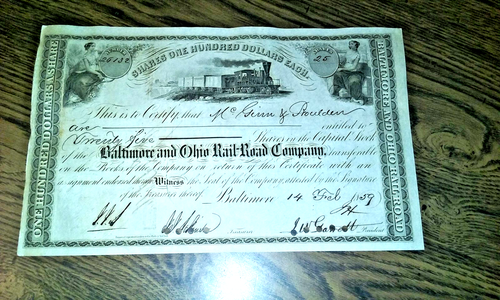 SHARES ONE HUNDRED DOLLARS EACH.
25
ONE HUNDRED DOLLARS A SHARE
BALTIMORE AND OHIO RAIL-ROAD
This is to Certify, that Mc Ginn &
are entitled to
Twenty Five Shares in the Capital Stock
of the Baltimore and Ohio Rail-Road Company, transferable
on the Books of the Company on return of this Certificate with an
assignment endorsed thereon Witness the Seal of the Company attested by the Signature
of the Treasurer thereof Baltimore 14 Feb 1859
Treasurer
J W Garrett President